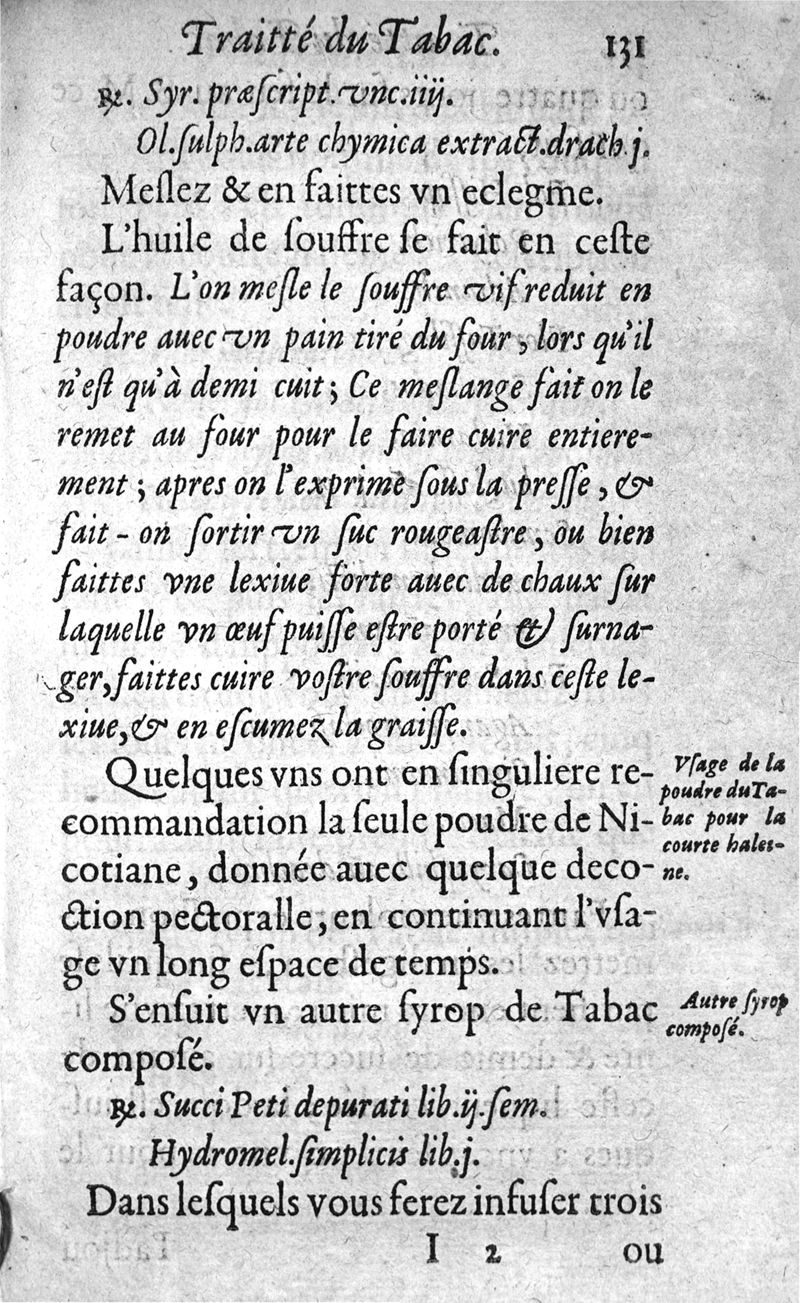 Traitté du Tabac. 131
℞. Syr. præſcript. vnc. iiij.
Ol. ſulph. arte chymica extract. drach j.
Meſlez & en faittes vn eclegme.
L'huile de ſouffre ſe fait en ceſte
façon. L'on meſle le ſouffre vif reduit en
poudre auec vn pain tiré du four, lors qu'il
n'eſt qu'à demi cuit; Ce meſlange fait on le
remet au four pour le faire cuire entiere-
ment; apres on l'exprime ſous la preſſe, &
fait-on ſortir vn ſuc rougeaſtre, ou bien
faittes vne lexiue forte auec de chaux ſur
laquelle vn œuf puiſſe eſtre porté & ſurna-
ger, faittes cuire voſtre ſouffre dans ceſte le-
xiue, & en eſcumez la graiſſe.
Quelques vns ont en ſinguliere re-
commandation la ſeule poudre de Ni-
cotiane, donnée auec quelque deco-
ction pectoralle, en continuant l'vſa-
ge vn long eſpace de temps.
Vſage de la
poudre du Ta-
bac pour la
courte halei-
ne.
S'enſuit vn autre ſyrop de Tabac
compoſé.
Autre ſyrop
compoſé.
℞. Succi Peti depurati lib. ij. ſem.
Hydromel. ſimplicis lib. j.
Dans leſquels vous ferez infuſer trois
I 2 ou